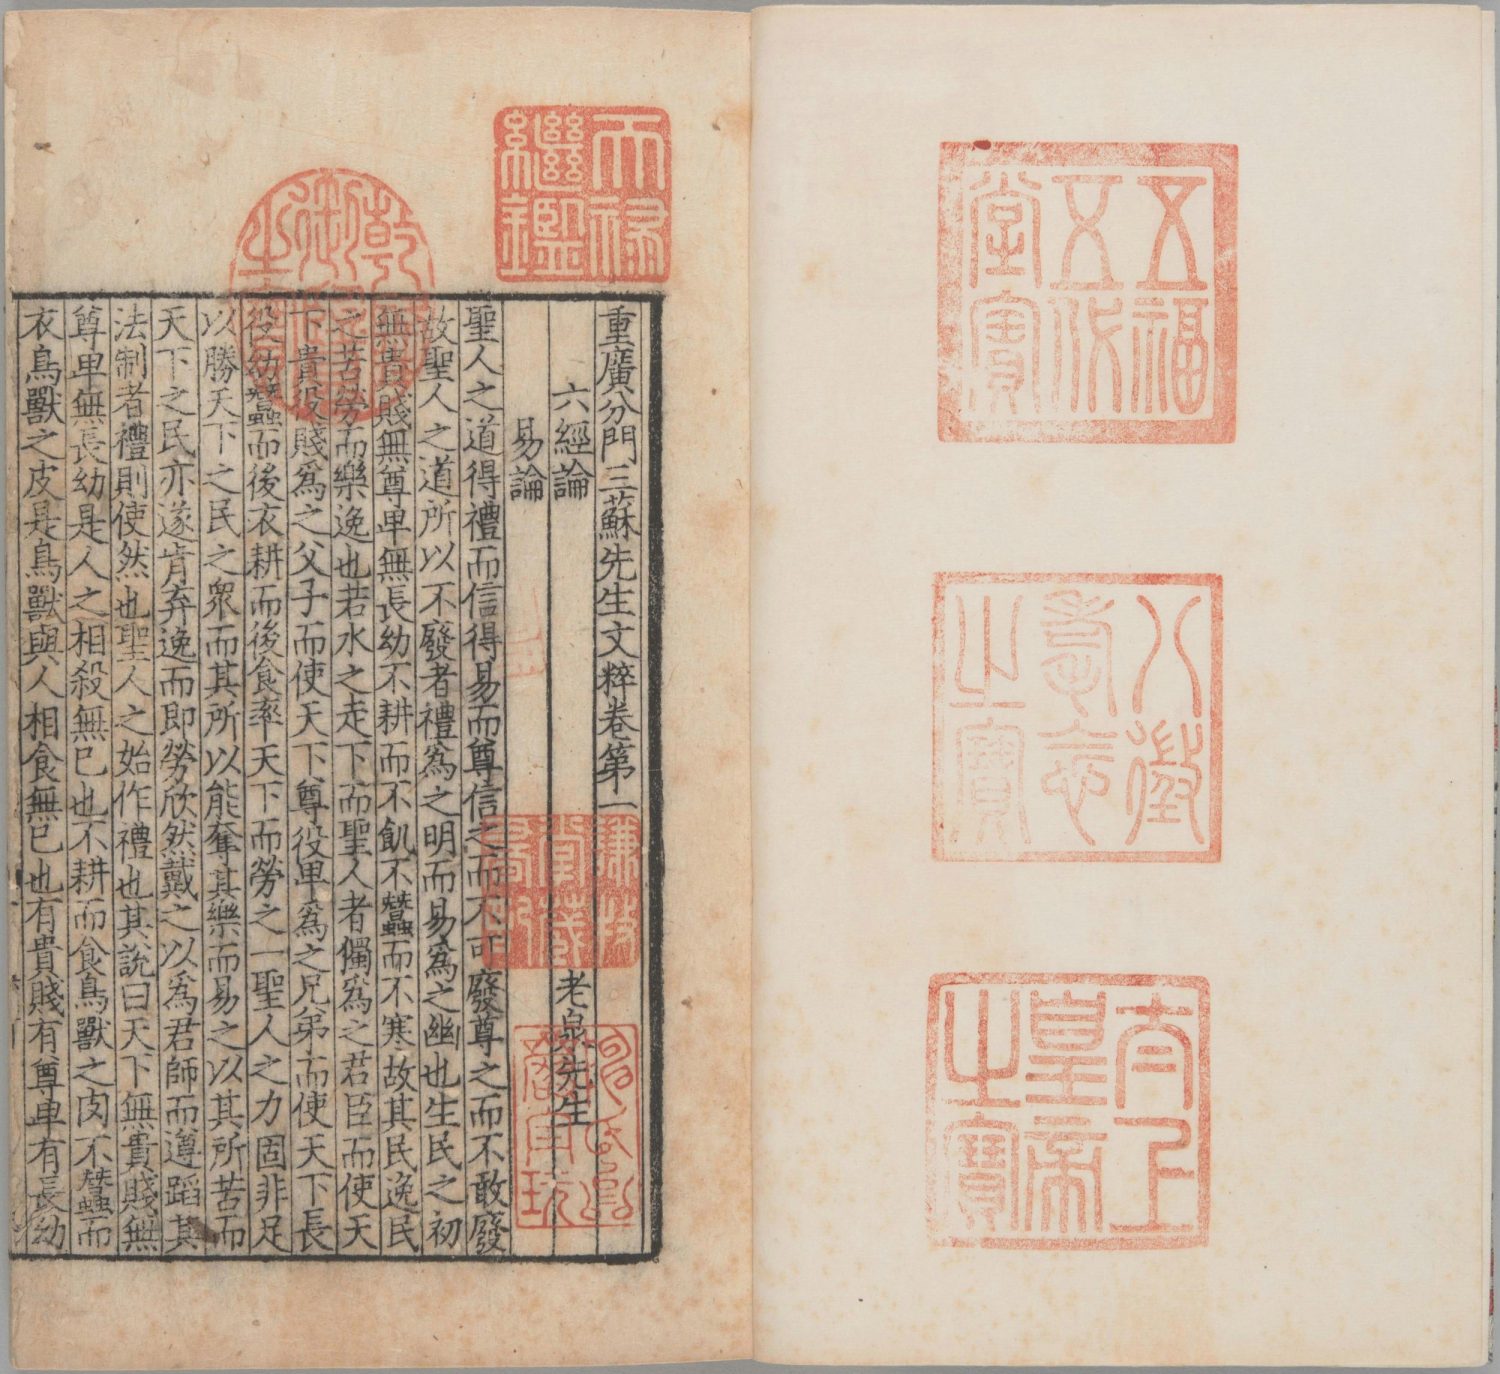 五福五代堂寶
八徵耄念之寶
太上皇帝之寶
天祿繼鑑
乾隆御覽之寶
重廣分門三蘇先生文粹卷第一
六經論 老泉先生
易論
聖人之道得禮而信得易而尊信之而不可廢尊之而不敢廢
故聖人之道所以不廢者禮爲之明而易爲之幽也生民之初
無貴賤無尊卑無長幼不耕而不飢不蠶而不寒故其民逸民
之苦勞而樂逸也若水之走下而聖人者獨爲之君臣而使天
下貴役賤爲之父子而使天下尊役卑爲之兄弟而使天下長
役幼蠶而後衣耕而後食率天下而勞之一聖人之力固非足
以勝天下之民之衆而其所以能奪其樂而易之以其所苦而
天下之民亦遂肯弃逸而即勞欣然戴之以爲君師而遵蹈其
法制者禮則使然也聖人之始作禮也其說曰天下無貴賤無
尊卑無長幼是人之相殺無已也不耕而食鳥獸之肉不蠶而
衣鳥獸之皮是鳥獸與人相食無已也有貴賤有尊卑有長幼
謙牧堂藏書記